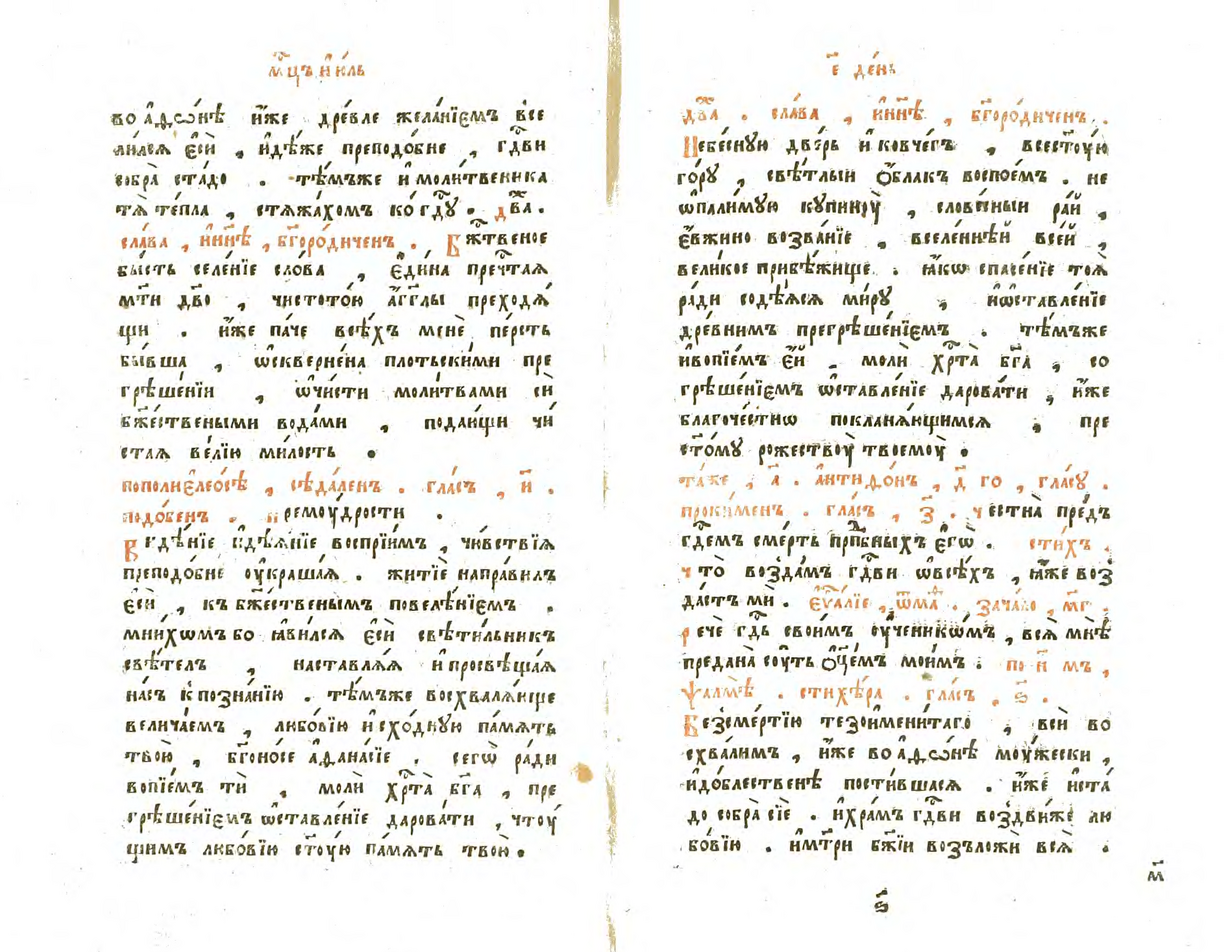 мⷭ҇цъ и҆ю́ль
во а҆ѳѡ́нѣ и҆́же дре́вле жела́нїємъ все
ли́лсѧ є҆сѝ , и҆дѣ́же преподо́бне , гдⷭ҇ви
собра̀ ста́до . тѣ́мъже и҆ моли́твеника
тѧ̀ те́пла , стѧжа́хомъ ко гдⷭ҇ꙋ . два́ .
сла́ва , и҆ нн҃ѣ , бг҃оро́диченъ . Бж҃твеное
бы́сть селе́нїе сло́ва , є҆ди́на пречⷭ҇таѧ
мт҃и дв҃о , чистото́ю а҆́гг҃лы преходѧ́
щи . и҆́же па́че всѣ́хъ менѐ пе́рсть
бы́вша , ѡ҆скверне́на пло́тьскими пре
грѣше́нїи , ѡ҆чи́сти моли́твами си
бж҃ествеными вода́ми , подаю́щи чи́
стаѧ ве́лїю ми́лость .
по полиє҆лео́сѣ , сѣда́ленъ . гла́съ , и҃ .
подо́бенъ . премоу́дрости .
Видѣ́нїе и҆ дѣѧ́нїе воспрїи́мъ , чю́вствїѧ
преподо́бне оу҆краша́ѧ . житїѐ напра́вилъ
є҆сѝ , къ бж҃ественымъ повелѣ́нїємъ .
мни́хѡмъ бо ꙗ҆ви́лсѧ є҆сѝ свѣти́льникъ
свѣ́телъ , наставлѧ́ѧ и҆ просвѣща́ѧ
на́съ к позна́нїю . тѣ́мъже восхвалѧ́юще
велича́емъ , любо́вїю и҆схо́дную па́мѧть
твою̀ , бг҃оно́се а҆ѳана́сїе . сегѡ̀ ра́ди
вопїе́мъ ти̑ , молѝ хрⷭ҇та̀ бг҃а , пре
грѣше́нїємъ ѡ҆ставле́нїе дарова́ти , чтоу́
щимъ любо́вїю ст҃оую па́мѧть твою̀ .
є҃ де́нь
два́ . сла́ва , и҆ нн҃ѣ , бг҃оро́диченъ .
Небе́сную две́рь и҆ ковче́гъ , всест҃оую
го́ру , свѣ́тлыи о҆́блакъ воспое́мъ . не
ѡ҆пали́мую купиноу̀ , слове́сныи ра́и ,
є҆́вжино возва́нїе , вселе́ннѣй все́й ,
вели́кое прибѣ́жище . ꙗ҆́кѡ спасе́нїе тоѧ̀
ра́ди содѣ́ѧсѧ ми́ру , и҆ ѡ҆ставле́нїе
дре́внимъ прегрѣше́нїємъ . тѣ́мъже
и҆ вопїе́мъ є҆́й . молѝ хрⷭ҇та̀ бг҃а , со
грѣше́нїємъ ѡ҆ставле́нїе дарова́ти , и҆́же
благоче́стиѡ покланѧ́ющимсѧ , пре
ст҃ому рожествоу̀ твоемоу̀ .
та́же , а҃ . а҆нтифо́нъ , д҃ го , гла́су .
проки́менъ . гла́съ , з҃ . честна̀ пре́дъ
гдⷭ҇емъ сме́рть прпⷣбныхъ є҆гѡ̀ . сти́хъ .
что̀ возда́мъ гдⷭ҇ви ѡ҆ всѣ́хъ , ꙗ҆́же воз
да́стъ мѝ . є҆ѵⷢ҇алїе , ѿ маⷴ҇ . зача́ло , мг҃ .
рече̑ гдⷭ҇ь свои́мъ оу҆ченикѡ́мъ , всѧ̀ мнѣ̀
предана̀ соу́ть ѻ҆ц҃емъ мои́мъ . по н҃ мъ ,
ѱалмѣ̀ . стихѣ́ра . гла́съ , ѕ҃ .
Безсме́ртїю тезоимени́таго , всѝ во
схва́лимъ , и҆́же во а҆ѳѡ́нѣ моу́жески ,
и҆ до́блественѣ пости́вшасѧ . и҆́же и҆ ста́
до собра̀ сїѐ . и҆ хра́мъ гдⷭ҇ви воздви́же лю
бо́вїю . и҆ мт҃ри бж҃їи возъложѝ всѧ̀ .
м҃
ѕ҃